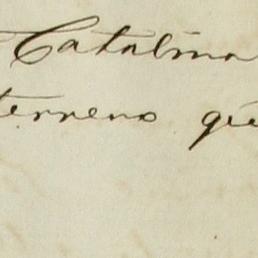 Catalina
terreno que